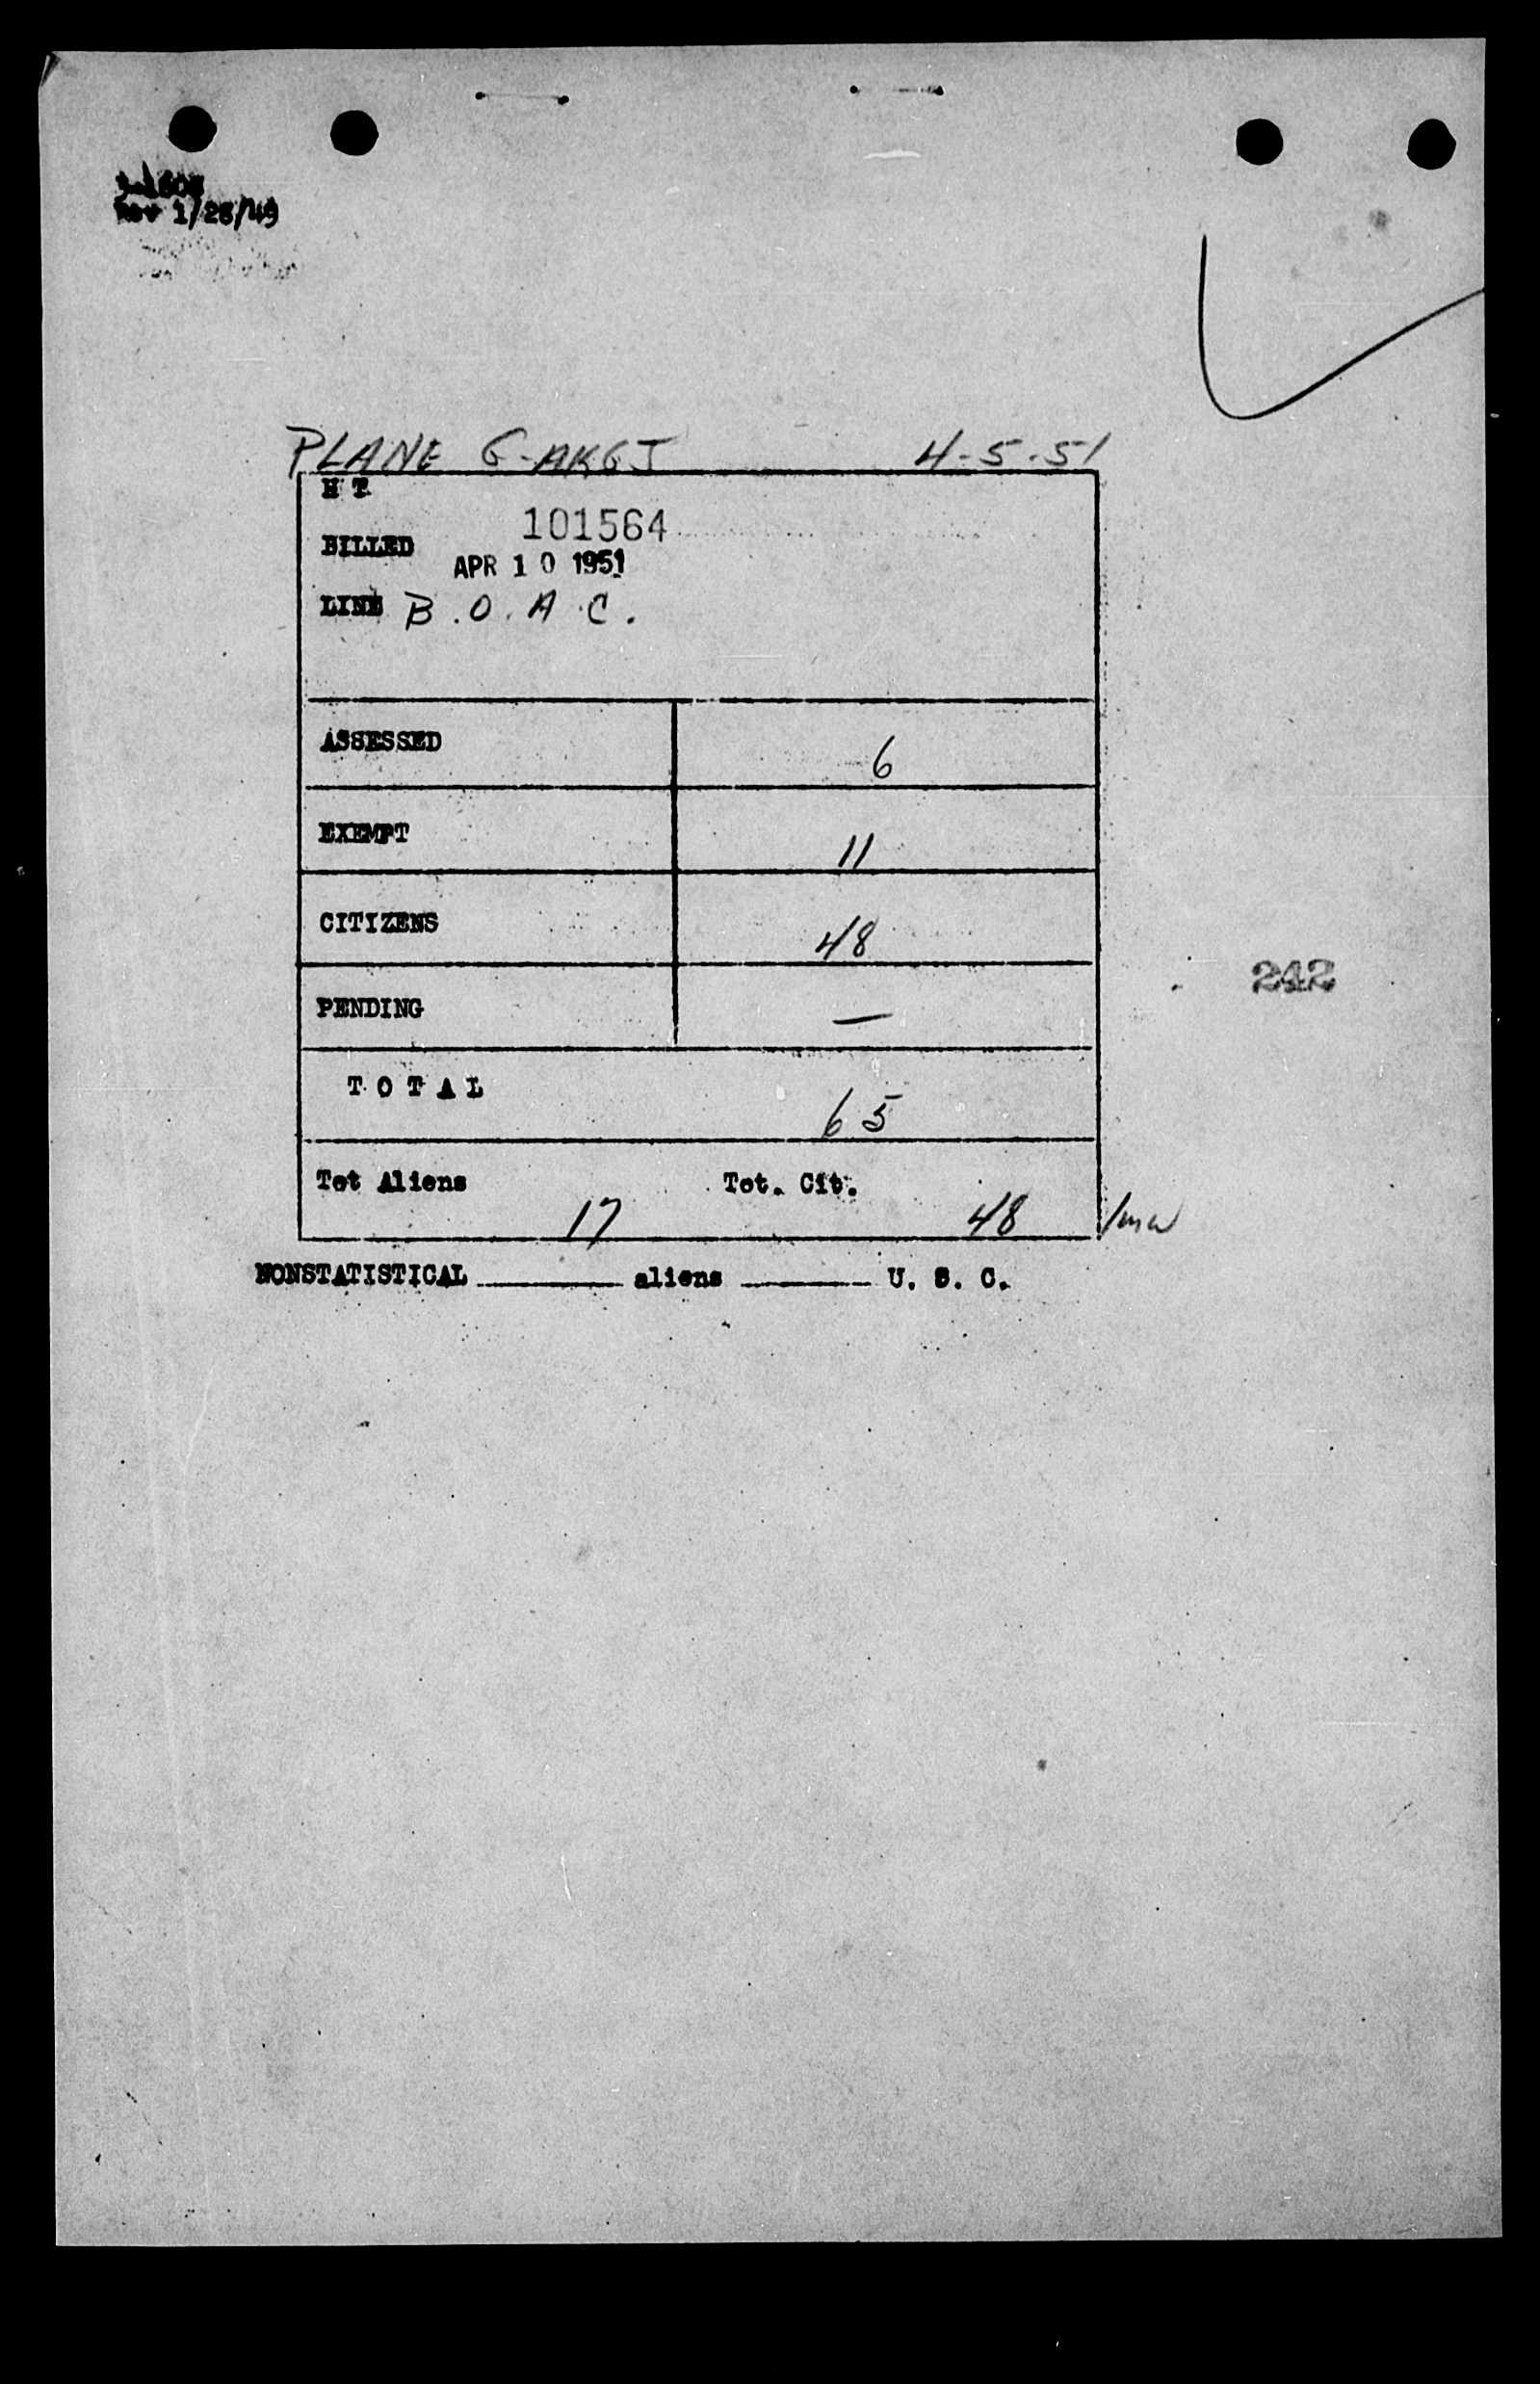 Rev 1/28/49
PLANE G-AKGJ 4-5-51
H T
101564
BILLED
APR 10 1951
LINE B.O.A.C.
ASSESSED 6
EXEMPT 11
CITIZENS 48
242
PENDING —
TOTAL 65
Tot Aliens 17 Tot. Cit. 48
NONSTATISTICAL ______ aliens ______ U. S. C.